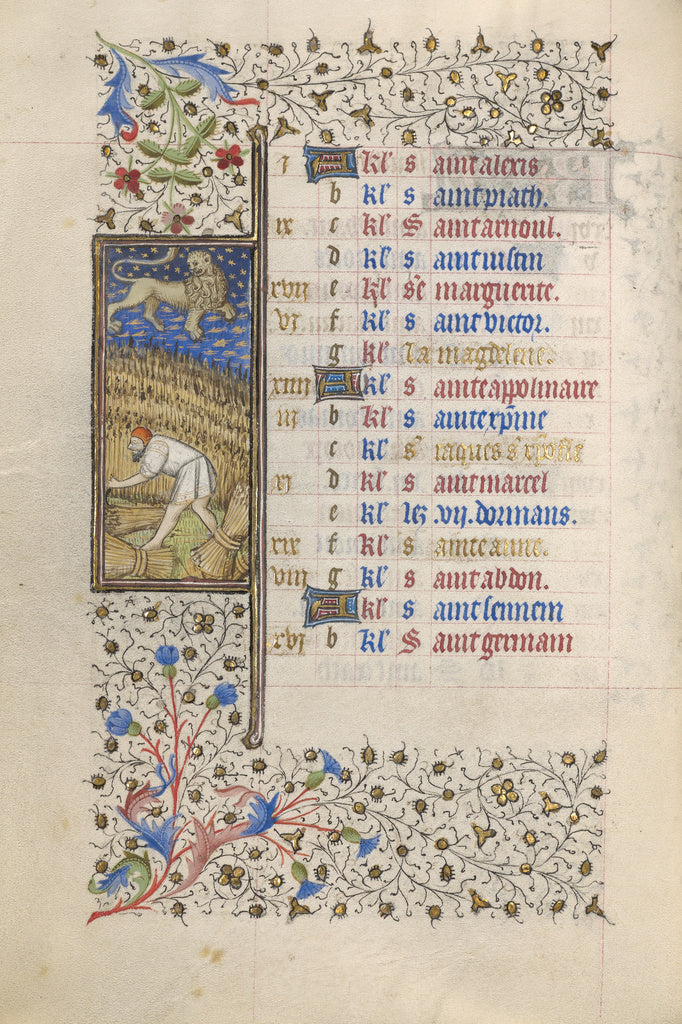 i A kl' s aint alexis
b kl' s aint piath.
ix c kl' S aint arnoul.
d kl' s aint iustin
xvij e kl' s'e marguerite.
vj f kl' s aint victor.
g kl' la magdelene.
xiiij A kl' s ainte appolinaire
iij b kl' s ainte xp̄ine
c kl' s' iaques s' xp̄ofle
xj d kl' s aint marcel
e kl' lez .vij. dormans.
xix f kl' s ainte anne.
viij g kl' s aint abdon.
A kl' s aint sennem
xvj b kl' S aint germain